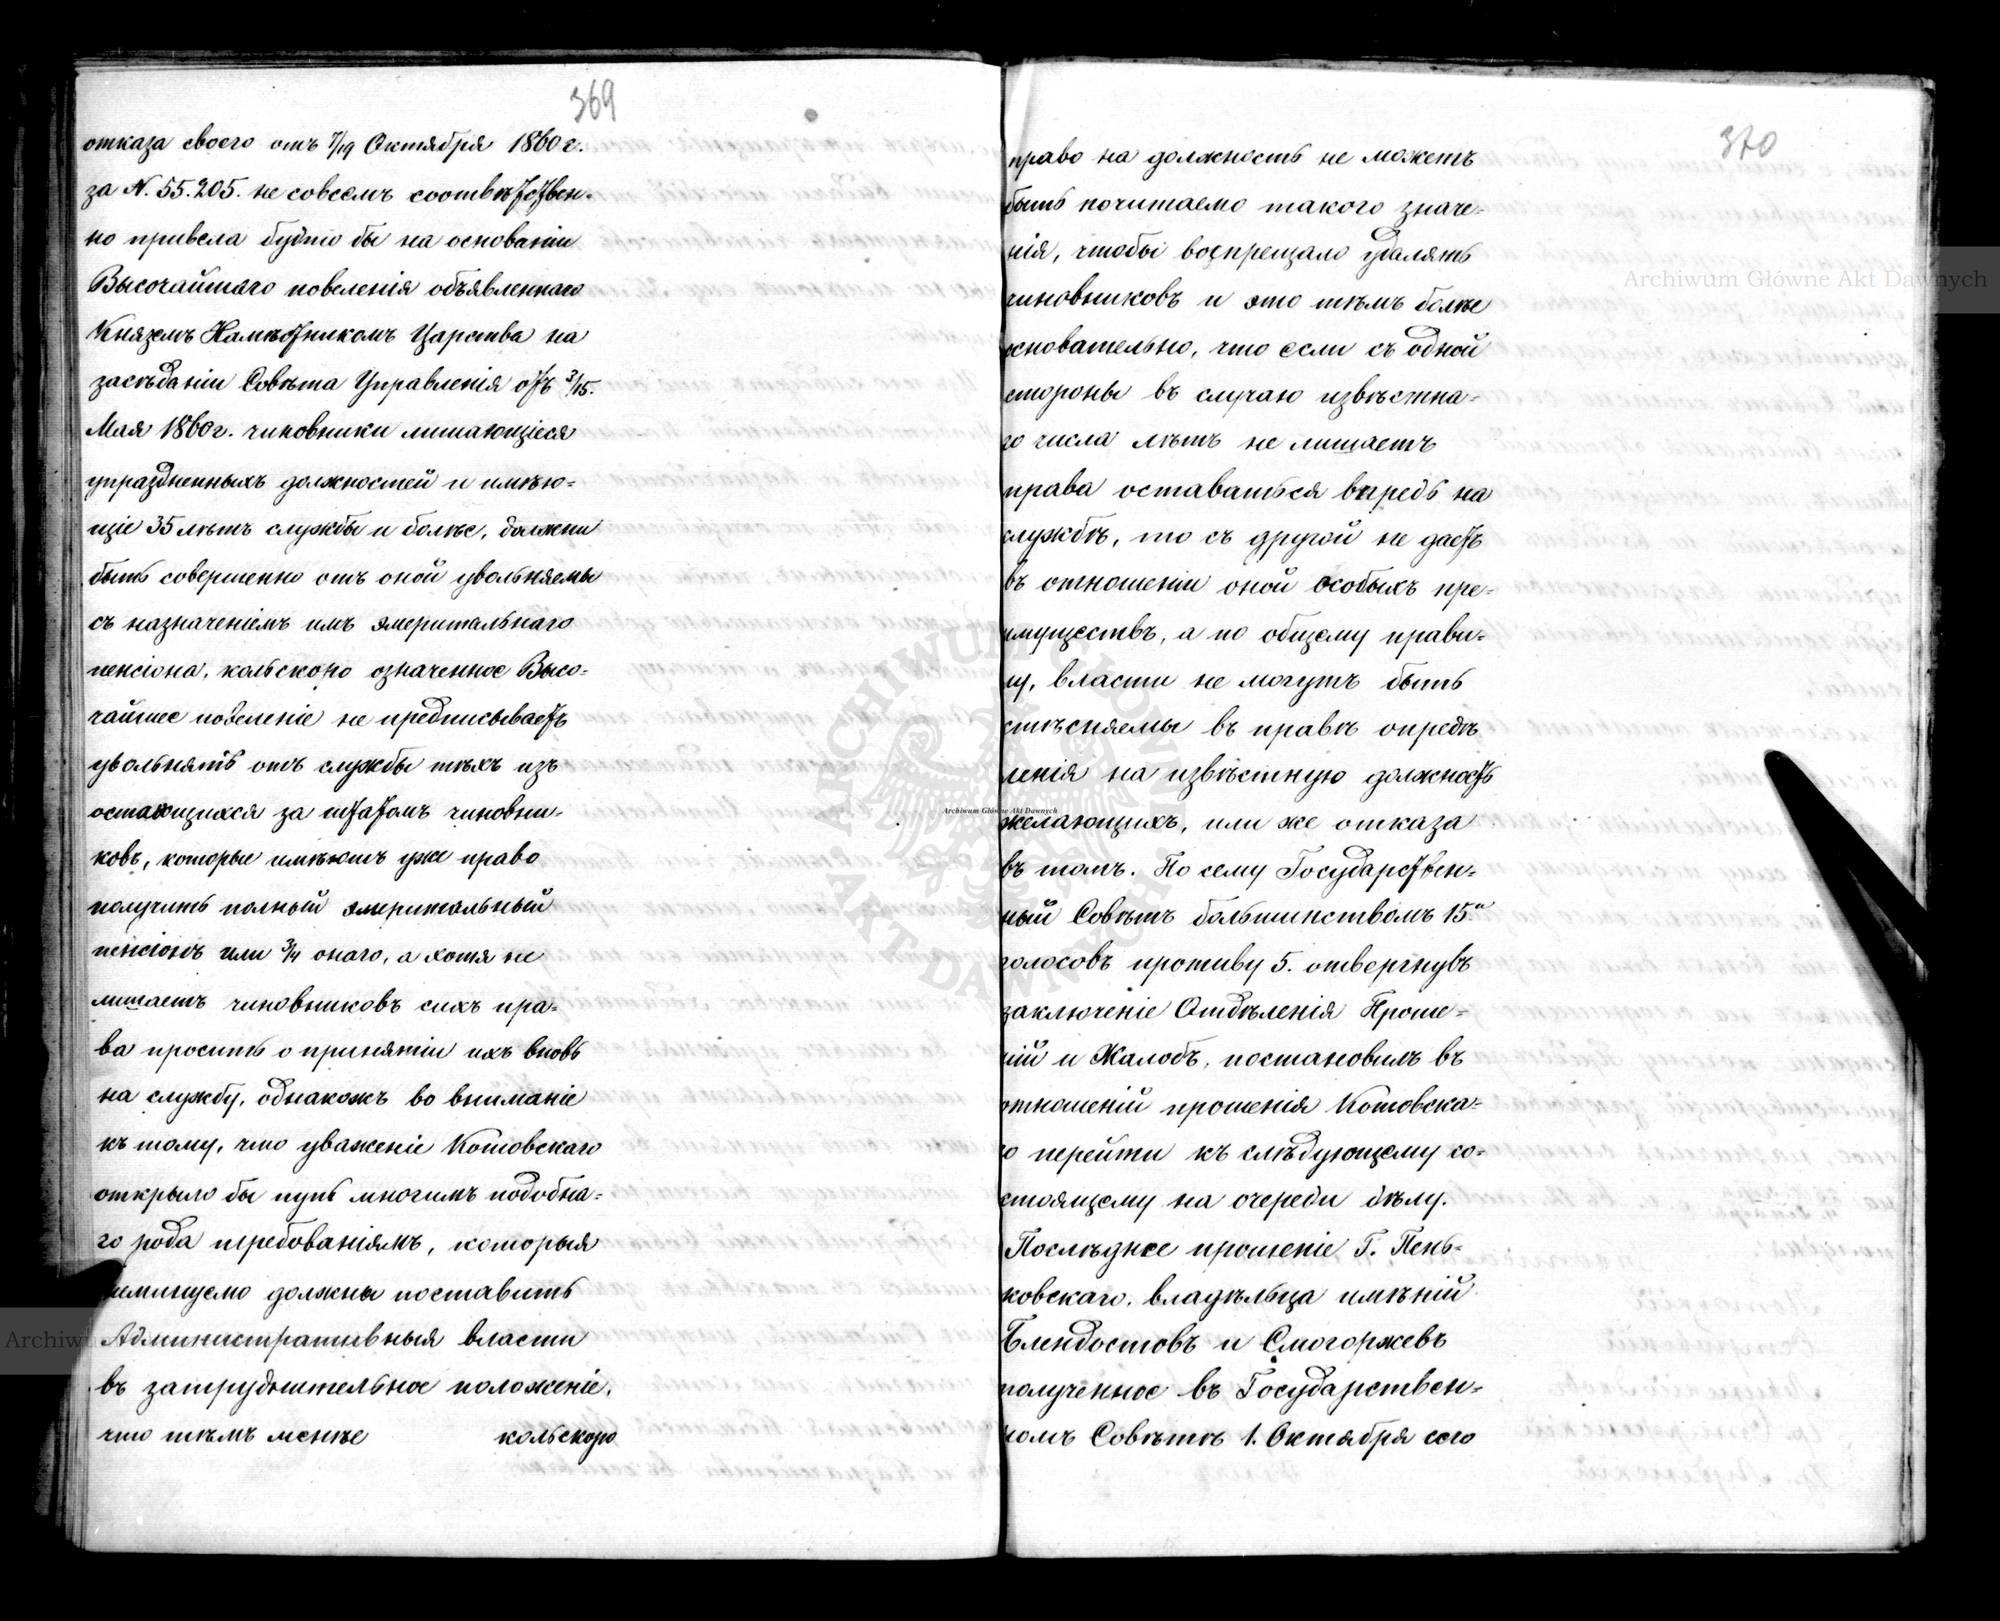 369
отказа своего отъ 7/19 Октября 1860 г.
за N. 55.205. не совсемъ соотвѣтствен-
но привела будто бы на основаніи
Высочайшаго повеленія объявленнаго
Княземъ Намѣстникомъ Царства на
засѣданіи Совѣта Управленія отъ 3/15.
Мая 1860 г. чиновники лишающіеся
упраздненныхъ должностей и имѣю-
щіе 35 лѣтъ службы и болѣе, должны
быть совершенно отъ оной увольняемы
съ назначеніемъ имъ эмеритальнаго
пенсіона, кольскоро означенное Высо-
чайшее повеленіе не предписываетъ
увольнять отъ службы тѣхъ изъ
остающихся за штатомъ чиновни-
ковъ, которые имѣютъ уже право
получить полный эмеритальный
пенсіонъ или 3/4 онаго, а хотя не
лишаетъ чиновниковъ сихъ пра-
ва просить о принятіи ихъ вновь
на службу, однакожъ во вниманіе
къ тому, что уваженіе Котовскаго
открыло бы путь многимъ подобна-
го рода требованіямъ, которыя
неминуемо должны поставить
Административныя власти
въ затруднительное положеніе,
что тѣмъ менѣе кольскоро
370
право на должность не можетъ
быть почитаемо такого значе-
нія, чтобы воспрещало удалять
чиновниковъ и это тѣмъ болѣе
основательно, что если съ одной
стороны въ случаю извѣстна-
го числа лѣтъ не лишаетъ
права оставаться впредь на
службѣ, то съ другой не даетъ
въ отношеніи оной особыхъ пре-
имуществъ, а по общему прави-
лу, власти не могутъ быть
стѣсняемы въ правѣ опредѣ
ленія на извѣстную должность
желающихъ, или же отказа
въ томъ. По сему Государствен-
ный Совѣтъ большинствомъ 15и
голосовъ противу 5. отвергнувъ
заключеніе Отдѣленія Проше-
ній и Жалобъ, постановилъ въ
отношеній прошенія Котовска-
го перейти къ слѣдующему со-
стоящему на очереди дѣлу.
Послѣднее прошеніе Г. Пень-
ковскаго, владѣльца имѣній
Блендостовъ и Смогоржевъ
полученное въ Государствен-
номъ Совѣтѣ 1. Октября сего
Archiwum Główne Akt Dawnych
Archiwum Główne Akt Dawnych
ARCHIWUM GŁÓWNE AKT DAWNYCH